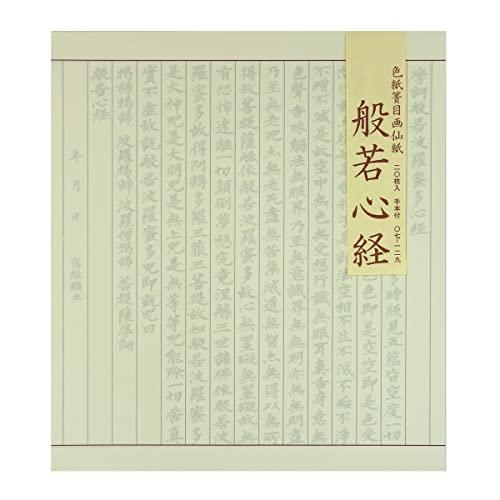 色紙簀目画仙紙
二〇枚入 手本付 〇七-一二九
般若心経
摩訶般若波羅蜜多心経
多時照見五蘊皆空度一切
色即是空空即是色受
空相不生不滅不垢不浄
不増不減是故空中無色無受想行識無眼耳鼻舌身意無
色聲香味觸法無眼界乃至無意識界無無明亦無無明盡
乃至無老死亦無老死盡無苦集滅道無智亦無得以無所
得故菩提薩埵依般若波羅蜜多故心無罣礙無罣礙故無
有恐怖遠離一切顛倒夢想究竟涅槃三世諸佛依般若波
羅蜜多故得阿耨多羅三藐三菩提故知般若波羅蜜多
是大神咒是大明咒是無上咒是無等等咒能除一切苦真
實不虚故説般若波羅蜜多咒即説咒曰
掲諦掲諦 波羅掲諦 波羅僧掲諦 菩提薩婆訶
般若心経
年 月 日 寫経願主